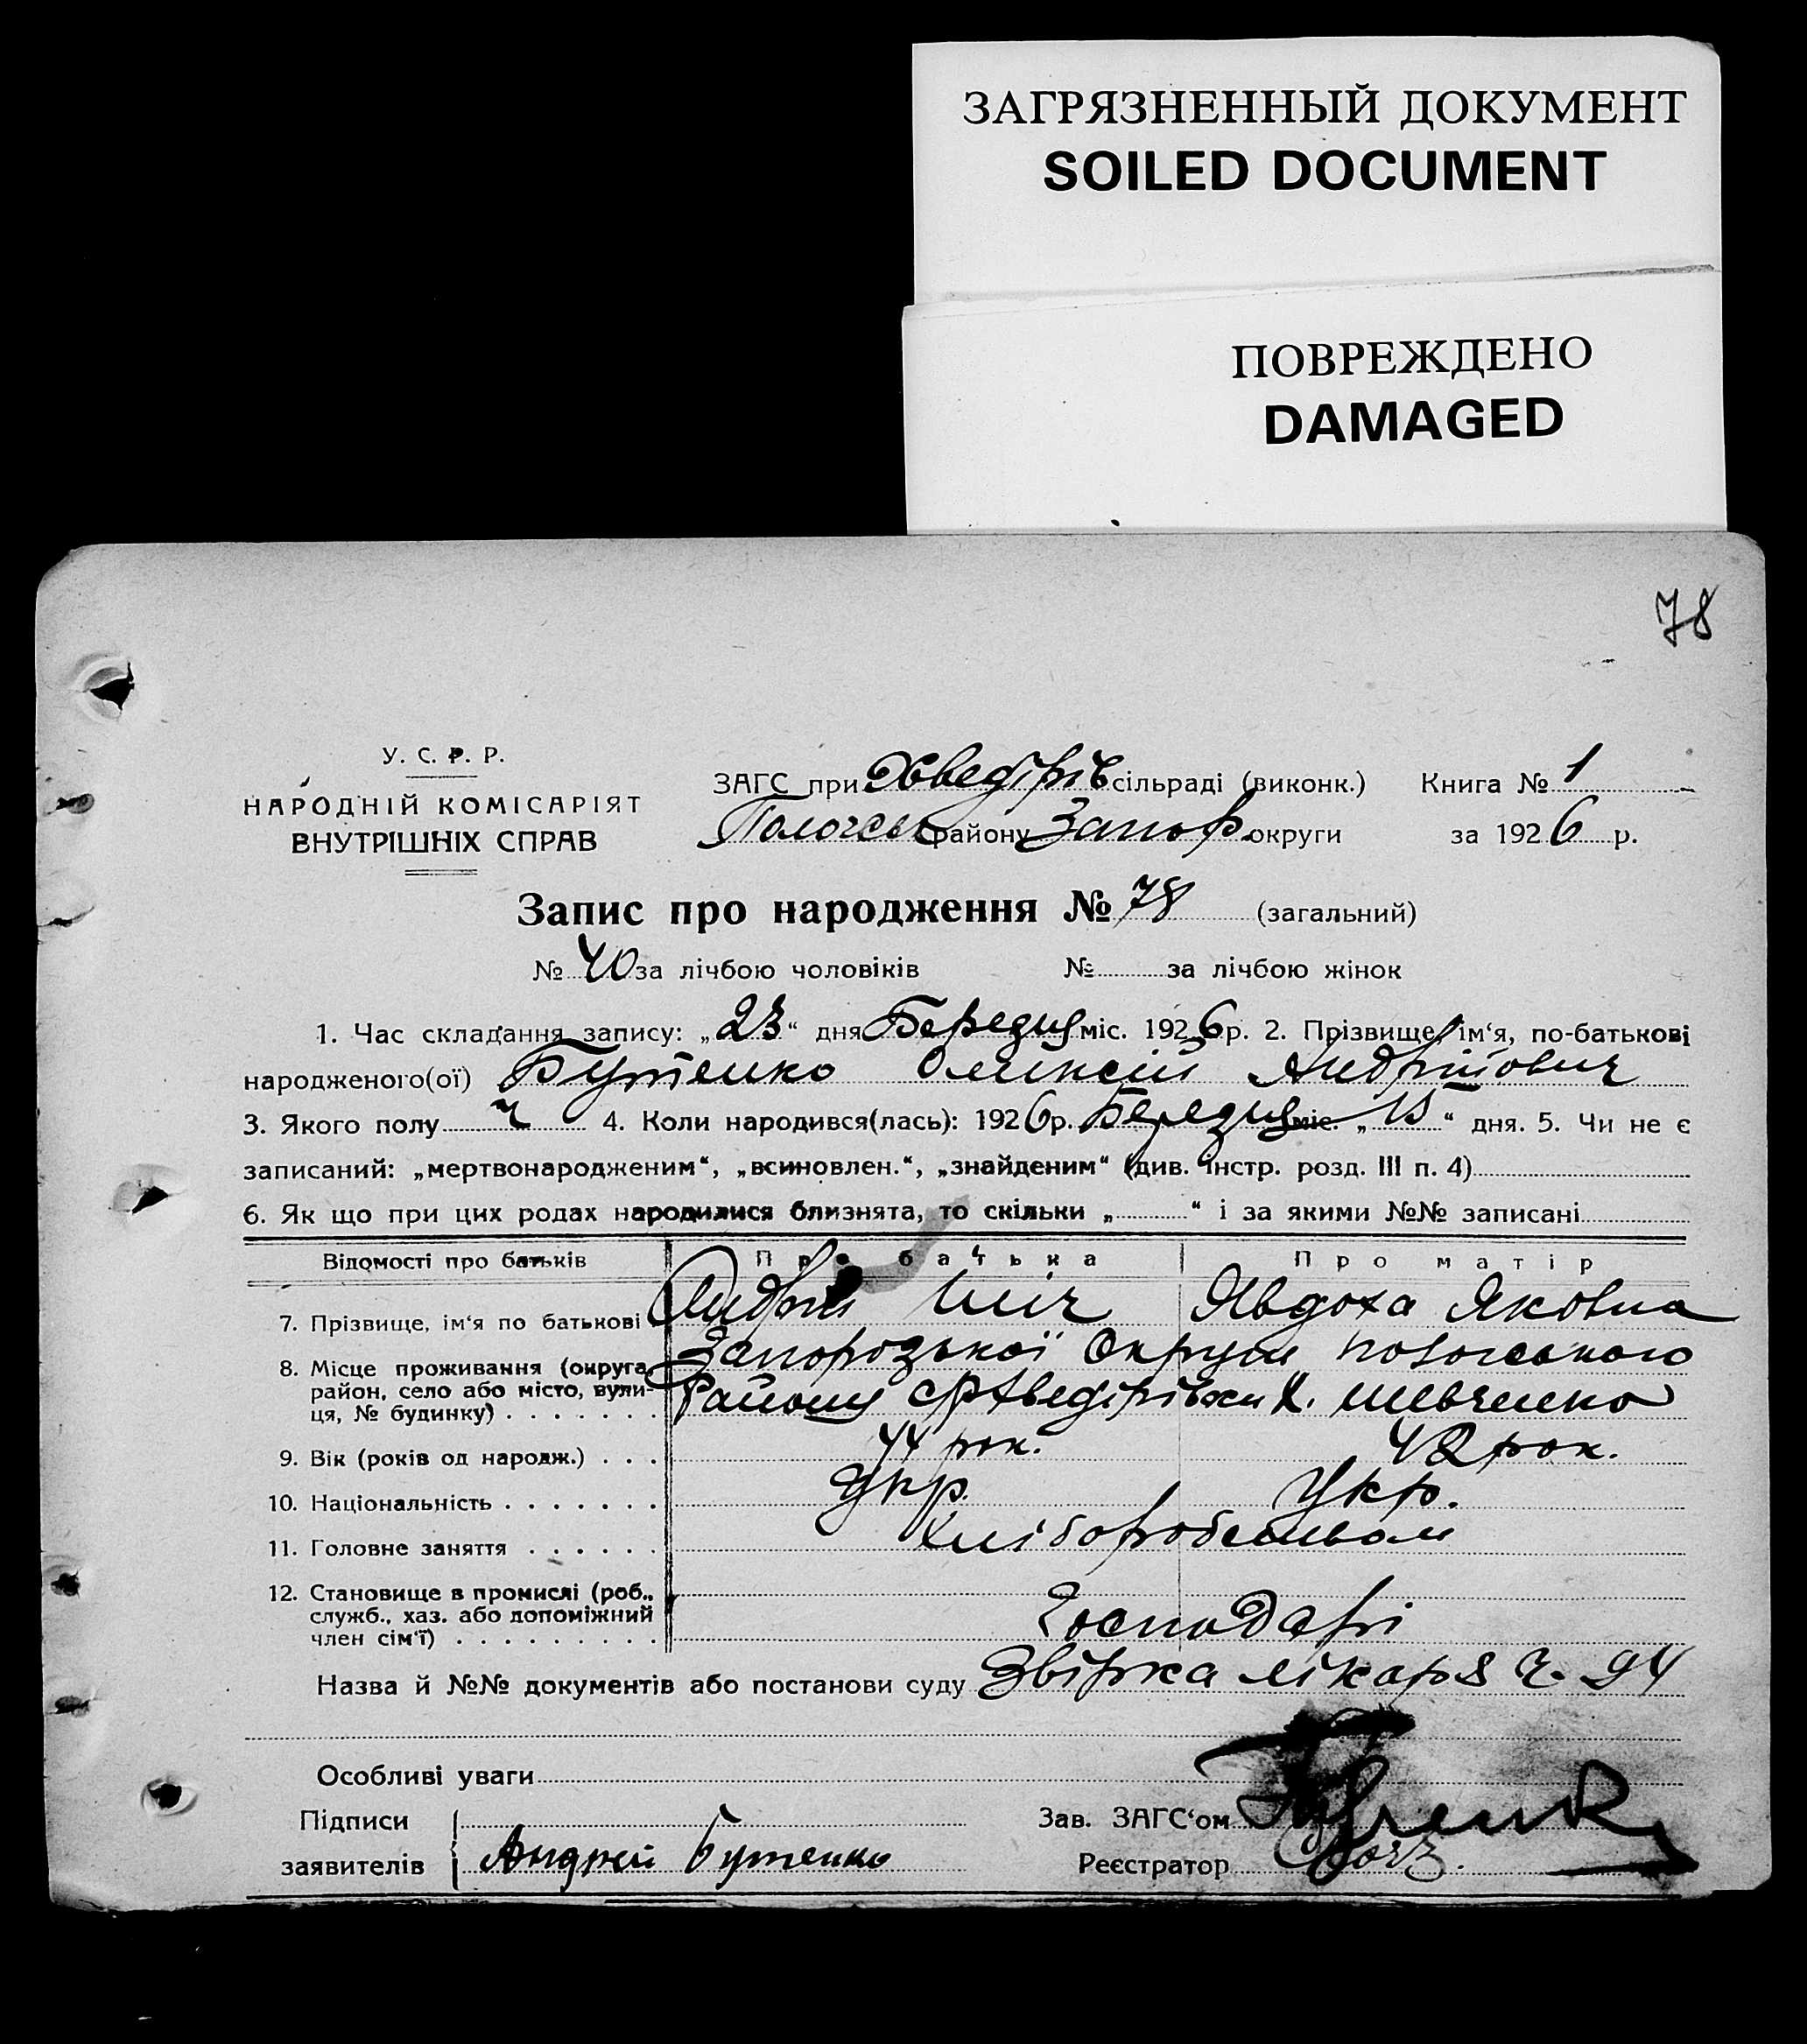 ЗАГРЯЗНЕННЫЙ ДОКУМЕНТ
SOILED DOCUMENT
ПОВРЕЖДЕНО
DAMAGED
78
У. С. Р. Р.
НАРОДНІЙ КОМІСАРІЯТ
ВНУТРІШНІХ СПРАВ
ЗАГС при Хведірів сільраді (виконк.) Книга № 1
Пологськ району Запор. округи за 1926 р.
Запис про народження № 78 (загальний)
№ 40 за лічбою чоловіків № за лічбою жінок
1. Час складання запису: „23“ дня Березня міс. 1926 р. 2. Прізвище, ім‘я, по-батькові
народженого(ої) Бутенко Олексій Андрійович
3. Якого полу ч 4. Коли народився(лась): 1926 р. Березня міс. „15“ дня. 5. Чи не є
записаний: „мертвонародженим“, „всиновлен.“, „знайденим“ (див. інстр. розд. III п. 4)
6. Як що при цих родах народилися близнята, то скільки „ “ і за якими №№ записані
Відомості про батьків Про батька Про матір
7. Прізвище, ім‘я по батькові Андрій Ілліч Явдоха Яковна
8. Місце проживання (округа, район, село або місто, вулиця, № будинку) Запорозької Округи Пологського
Району с Хведірівки Х. Шевченко
9. Вік (років од народж.) 44 рок. 42 рок.
10. Національність Укр. Укр.
11. Головне заняття Хліборобством
12. Становище в промислі (роб., служб., хаз. або допоміжний член сім‘ї) Господарі
Назва й №№ документів або постанови суду Звірка лікаря ч. 94
Особливі уваги
Підписи Зав. ЗАГС‘ом
заявителів Андрей Бутенко Реєстратор